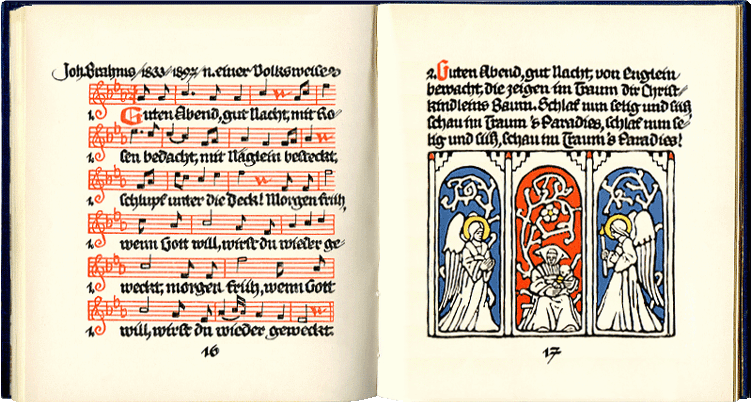 Joh. Brahms /1833/1897/ n. einer Volksweise
1. Guten Abend, gut Nacht, mit Ro-
1. sen bedacht, mit Näglein besteckt,
1. schlupf unter die Deck! Morgen früh,
1. wenn Gott will, wirst du wieder ge-
1. weckt, morgen früh, wenn Gott
1. will, wirst du wieder geweckt.
16
2. Guten Abend, gut Nacht, von Englein
bewacht, die zeigen im Traum dir Christ-
kindleins Baum. Schlaf nun selig und süß,
schau im Traum 's Paradies, schlaf nun se-
lig und süß, schau im Traum 's Paradies!
17